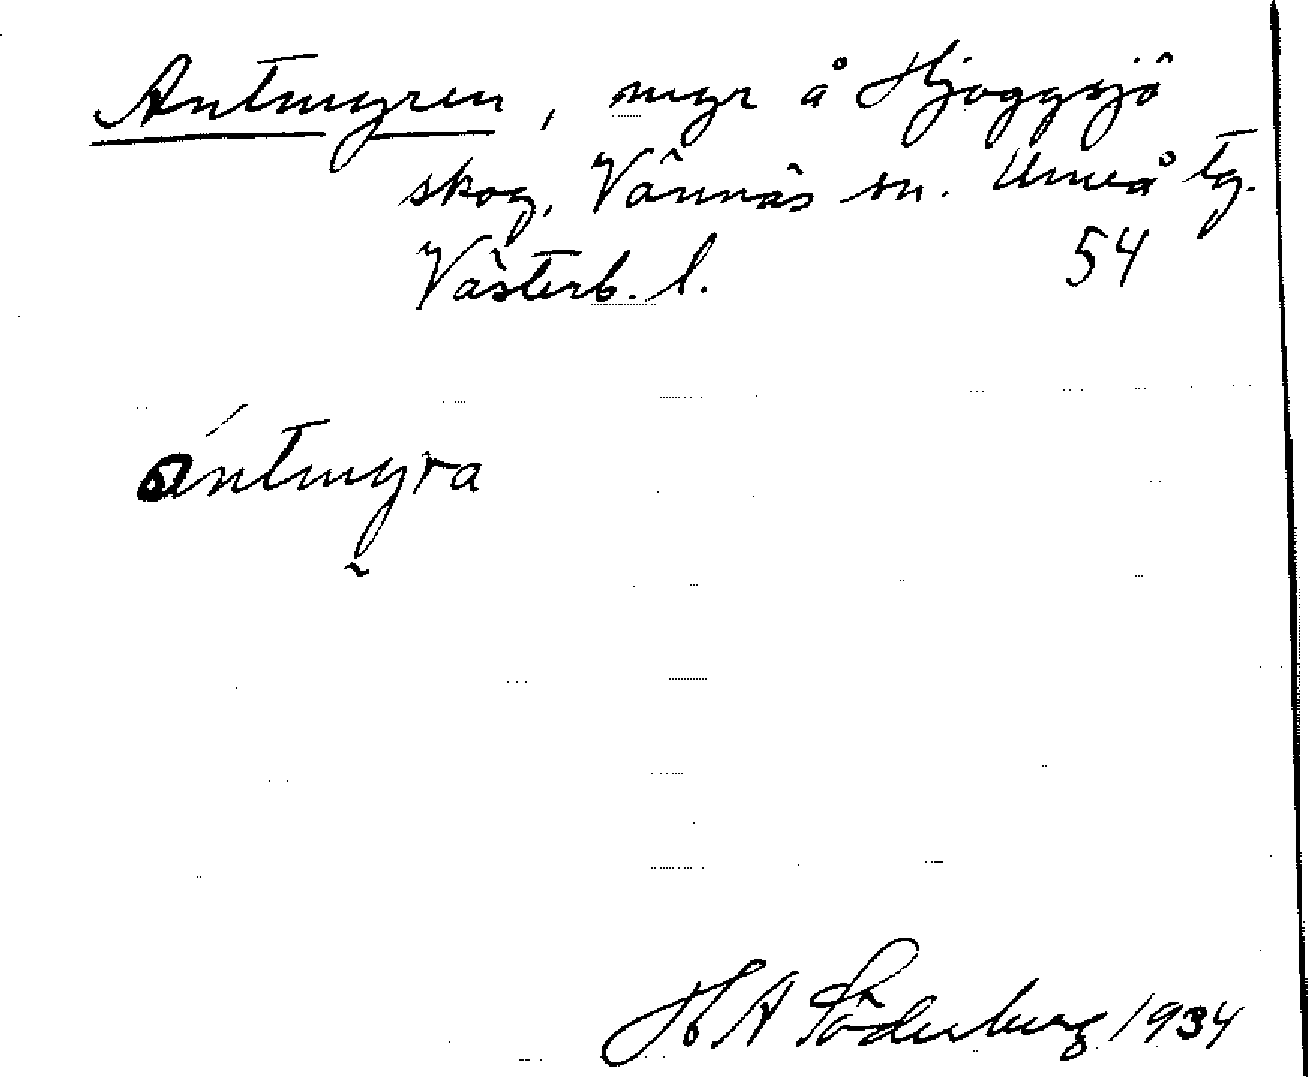 Antmyren, myr å Hjoggsjö
skog, Vännäs sn. Umeå tg.
Västerb. l. 54
ántmyra
H A Söderberg 1934